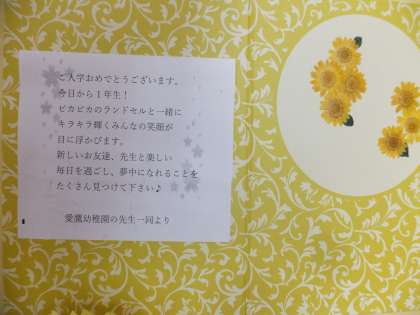 ご入学おめでとうございます。
今日から1年生!
ピカピカのランドセルと一緒に
キラキラ輝くみんなの笑顔が
目に浮かびます。
新しいお友達、先生と楽しい
毎日を過ごし、夢中になれることを
たくさん見つけて下さい♪
愛鷹幼稚園の先生一同より